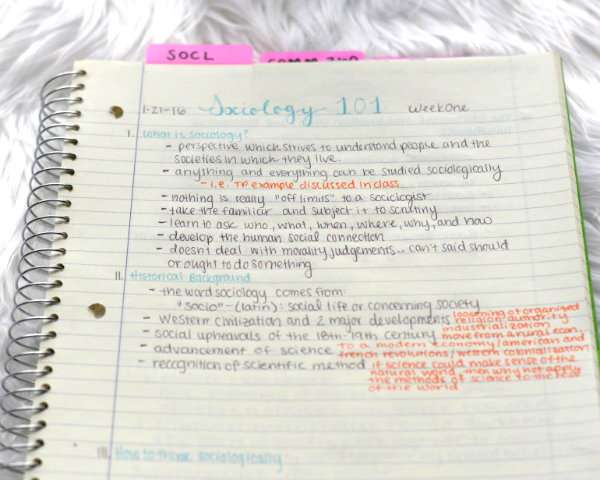 SOCL
COMM
1-21-16 Sociology 101 Week One
I. What is sociology?
- perspective which strives to understand people and the
societies in which they live.
- anything and everything can be studied sociologically
- i.e. TP example discussed in class
- nothing is really "off limits" to a sociologist
- take the familiar and subject it to scrutiny
- learn to ask who, what, when, where, why, and how
- develop the human social connection
- doesn't deal with morality judgements... can't said should
or ought to do something
II. Historical Background
- the word sociology comes from:
"socio" - (latin): social life or concerning society
- Western Civilization and 2 major developments loosening of organized
religion authority
- social upheavals of the 18th-19th century industrialization,
move from a rural econ.
- advancement of science to a modern economy/american and
french revolutions/western colonialization
- recognition of scientific method if science could make sense of the
natural world, then why not apply
the methods of science to the rest
of the world
III. How to think sociologically